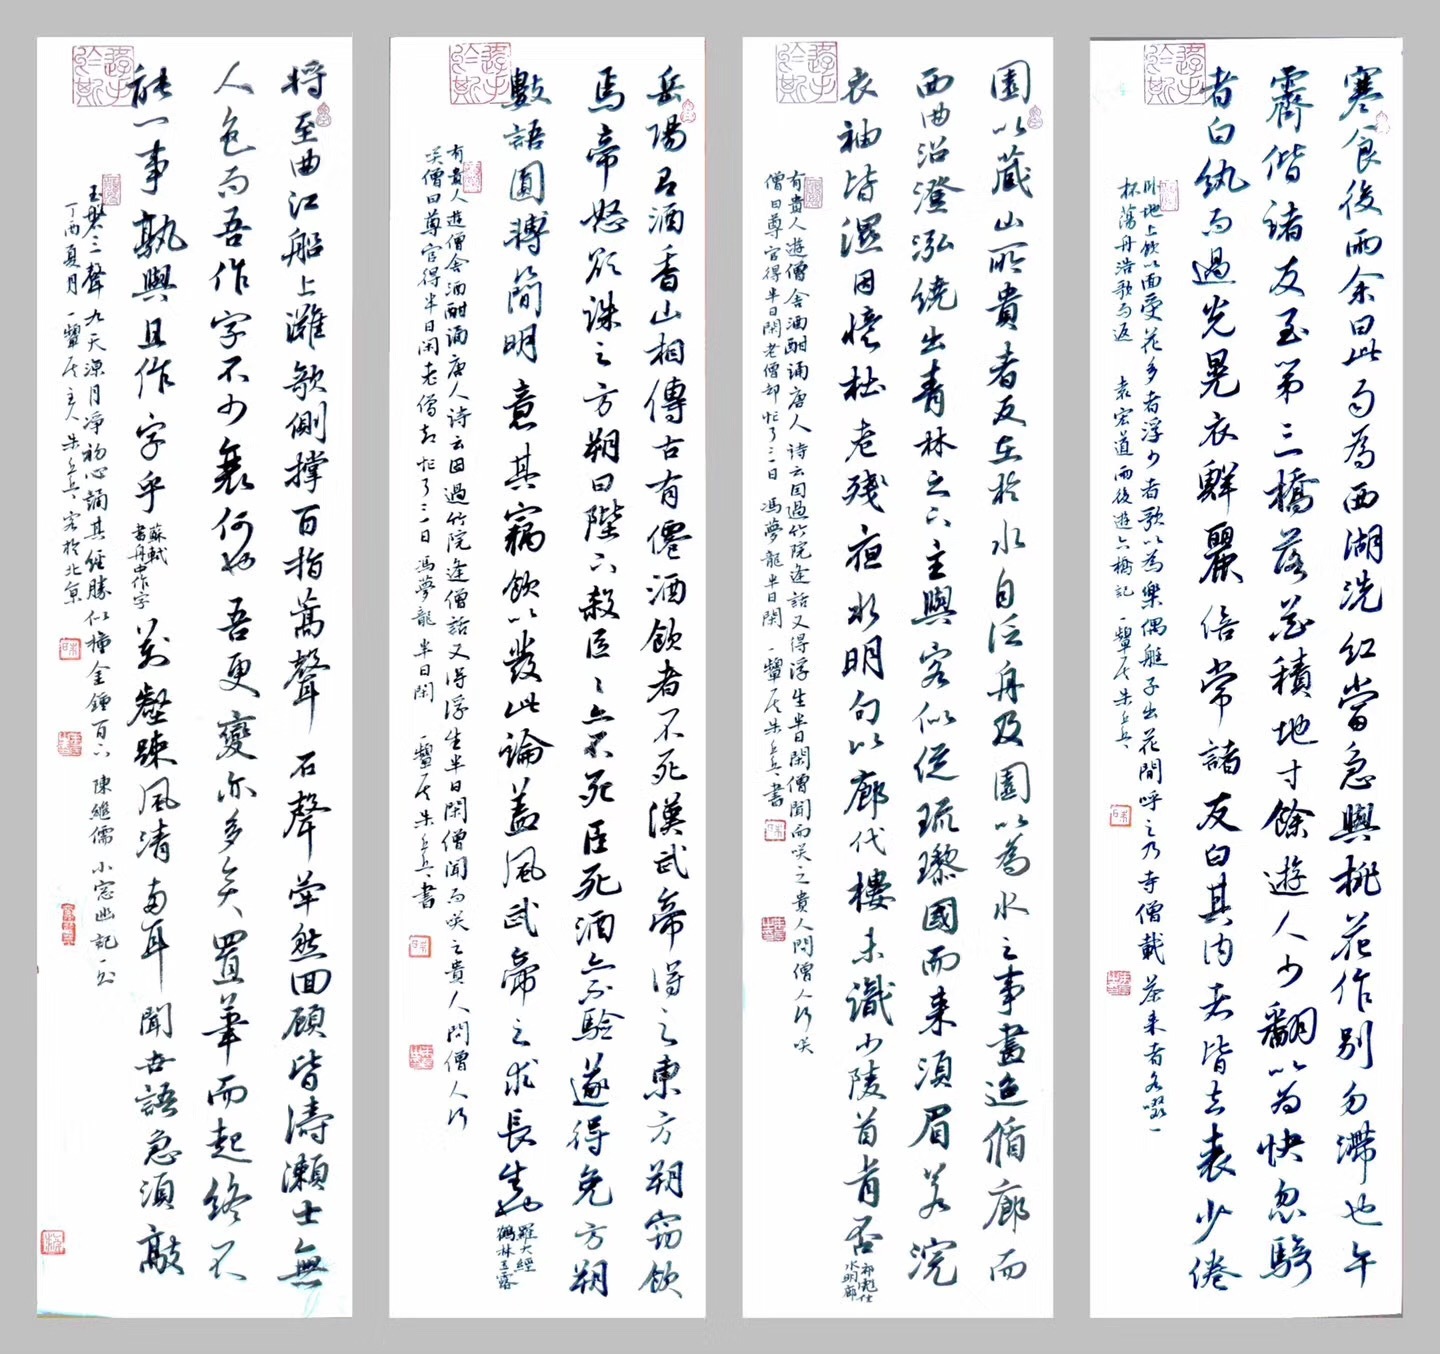 寒食後雨余曰此雨為西湖洗紅當急與桃花作別勿滯也午
霽偕諸友至第三橋落花積地寸餘遊人少翻以為快忽騎
者白紈而過光晃衣鮮麗倍常諸友白其內者皆去表少倦
臥地上飲以面受花多者浮少者歌以為樂偶艇子出花間呼之乃寺僧載茶來者各啜一
杯蕩舟浩歌而返 袁宏道雨後遊六橋記 一犟居朱兵兵
園以藏山所貴者反在於水自泛舟及園以為水之事盡迨循廊而
西曲沼澄泓繞出青林之下主與客似從琉璃國而來須眉若浣
衣袖皆濕因憶杜老殘夜水明句以廊代樓未識少陵首肯否
祁彪佳
水明廊
有貴人遊僧舍酒酣誦唐人詩云因過竹院逢僧話又得浮生半日閑僧聞而咲之貴人問僧人何咲
僧曰尊官得半日閑老僧却忙了三日 馮夢龍半日閑 一犟居朱兵兵書
岳陽有酒香山相傳古有僊酒飲者不死漢武帝得之東方朔竊飲
焉帝怒欲誅之方朔曰陛下殺臣臣亦不死臣死酒亦不驗遂得免方朔
數語圓轉簡明意其竊飲以發此論蓋風武帝之求長生也
羅大經
鶴林玉露
有貴人遊僧舍酒酣誦唐人詩云因過竹院逢僧話又得浮生半日閑僧聞而咲之貴人問僧人何
咲僧曰尊官得半日閑老僧却忙了三日 馮夢龍 半日閑 一犟居朱兵兵書
將至曲江船上灘欹側撐百指篙聲石聲犖然四顧皆濤瀨士無
人色而吾作字不少衰何也吾更變亦多矣置筆而起終不
能一事孰與且作字乎
蘇軾
書舟中作字
萬壑疎風清兩耳聞世語急須敲
玉磬三聲九天涼月淨初心誦其經勝似撞金鍾百下 陳繼儒 小窓幽記一則
丁丙夏月 一犟居主人朱兵兵客於北京